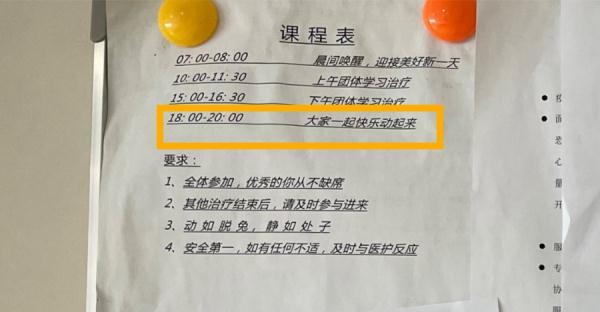 课程表
07:00-08:00 晨间唤醒，迎接美好新一天
10:00-11:30 上午团体学习治疗
15:00-16:30 下午团体学习治疗
18:00-20:00 大家一起快乐动起来
要求：
1、全体参加，优秀的你从不缺席
2、其他治疗结束后，请及时参与进来
3、动如脱兔，静如处子
4、安全第一，如有任何不适，及时与医护反应
心
量
开
● 服
● 专
协